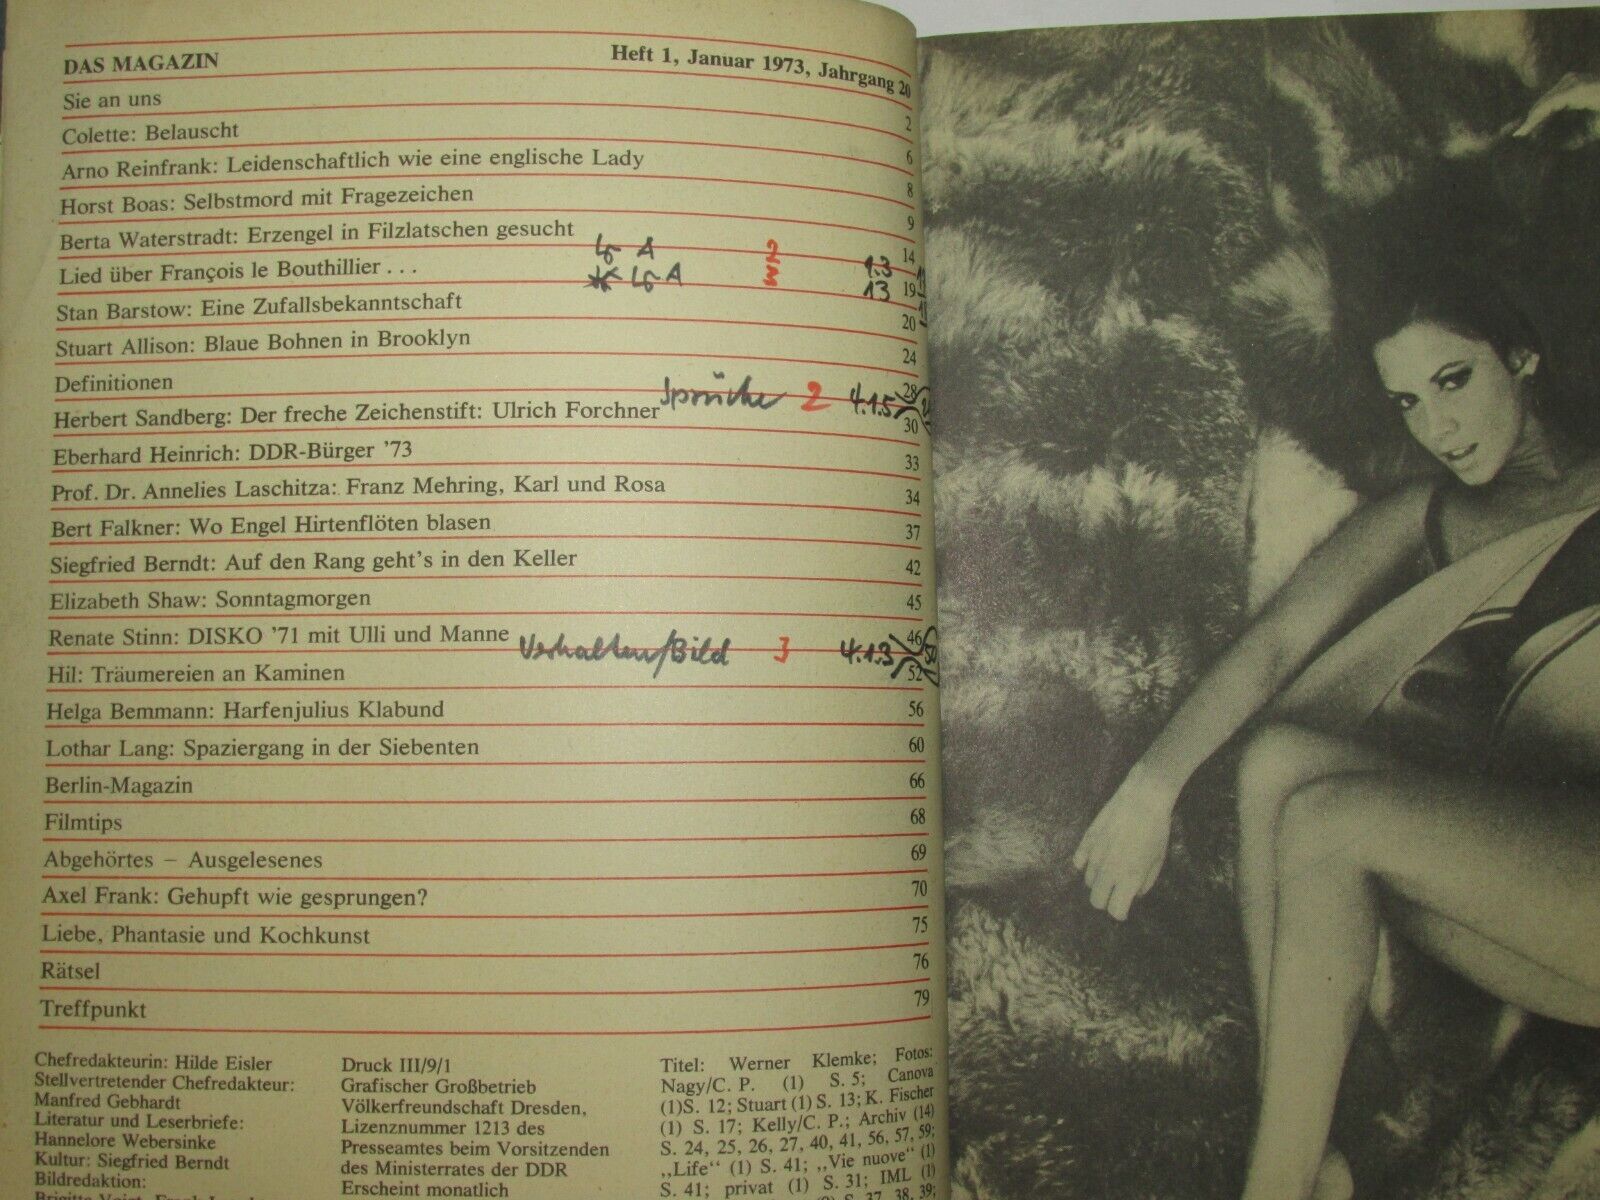 DAS MAGAZIN Heft 1, Januar 1973, Jahrgang 20
Sie an uns 2
Colette: Belauscht 6
Arno Reinfrank: Leidenschaftlich wie eine englische Lady 8
Horst Boas: Selbstmord mit Fragezeichen 9
Berta Waterstradt: Erzengel in Filzlatschen gesucht 14
Lied über François le Bouthillier . . . 19
Stan Barstow: Eine Zufallsbekanntschaft 20
Stuart Allison: Blaue Bohnen in Brooklyn 24
Definitionen 28
Sprüche 2 4.1.5
Herbert Sandberg: Der freche Zeichenstift: Ulrich Forchner 30
Eberhard Heinrich: DDR-Bürger ’73 33
Prof. Dr. Annelies Laschitza: Franz Mehring, Karl und Rosa 34
Bert Falkner: Wo Engel Hirtenflöten blasen 37
Siegfried Berndt: Auf den Rang geht’s in den Keller 42
Elizabeth Shaw: Sonntagmorgen 45
Renate Stinn: DISKO ’71 mit Ulli und Manne 46
Verhalten/Bild 3 4.1.3
Hil: Träumereien an Kaminen 52
Helga Bemmann: Harfenjulius Klabund 56
Lothar Lang: Spaziergang in der Siebenten 60
Berlin-Magazin 66
Filmtips 68
Abgehörtes – Ausgelesenes 69
Axel Frank: Gehupft wie gesprungen? 70
Liebe, Phantasie und Kochkunst 75
Rätsel 76
Treffpunkt 79
Chefredakteurin: Hilde Eisler
Stellvertretender Chefredakteur:
Manfred Gebhardt
Literatur und Leserbriefe:
Hannelore Webersinke
Kultur: Siegfried Berndt
Bildredaktion:
Druck III/9/1
Grafischer Großbetrieb
Völkerfreundschaft Dresden,
Lizenznummer 1213 des
Presseamtes beim Vorsitzenden
des Ministerrates der DDR
Erscheint monatlich
Titel: Werner Klemke; Fotos:
Nagy/C. P. (1) S. 5; Canova
(1)S. 12; Stuart (1) S. 13; K. Fischer
(1) S. 17; Kelly/C. P.; Archiv (14)
S. 24, 25, 26, 27, 40, 41, 56, 57, 59;
„Life“ (1) S. 41; „Vie nuove“ (1)
S. 41; privat (1) S. 31; IML (1)
S. 37, 38, 39;